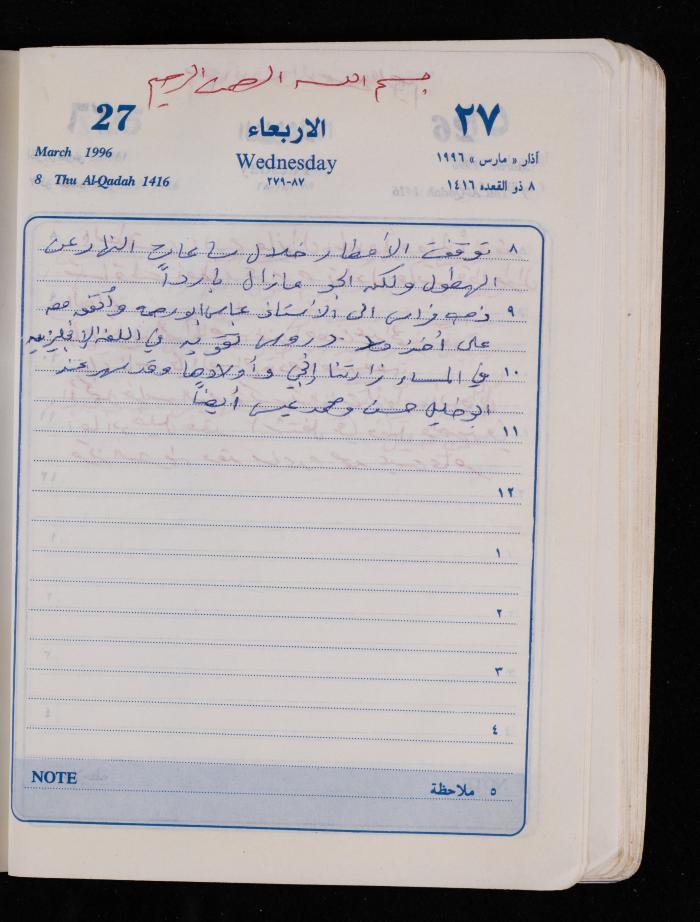 بسم الله الرحمن الرحيم
27 الاربعاء ٢٧
March 1996 Wednesday آذار « مارس » ١٩٩٦
8 Thu Al-Qadah 1416 ٢٧٩-٨٧ ٨ ذو القعده ١٤١٦
٨ توقفت الأمطار خلال ساعات النهار عن
الهطول ولكن الجو مازال بارداً
٩ ذهب فراس الى الأستاذ عباس وأتفق معه
على أخذ دروس تقوية في اللغة الإنجليزية
١٠ في المساء زارتنا وأولادها وقد سهر عند
ابو خليل حسن ومحمد أيضاً
١١
١٢
١
٢
٣
٤
NOTE ٥ ملاحظة